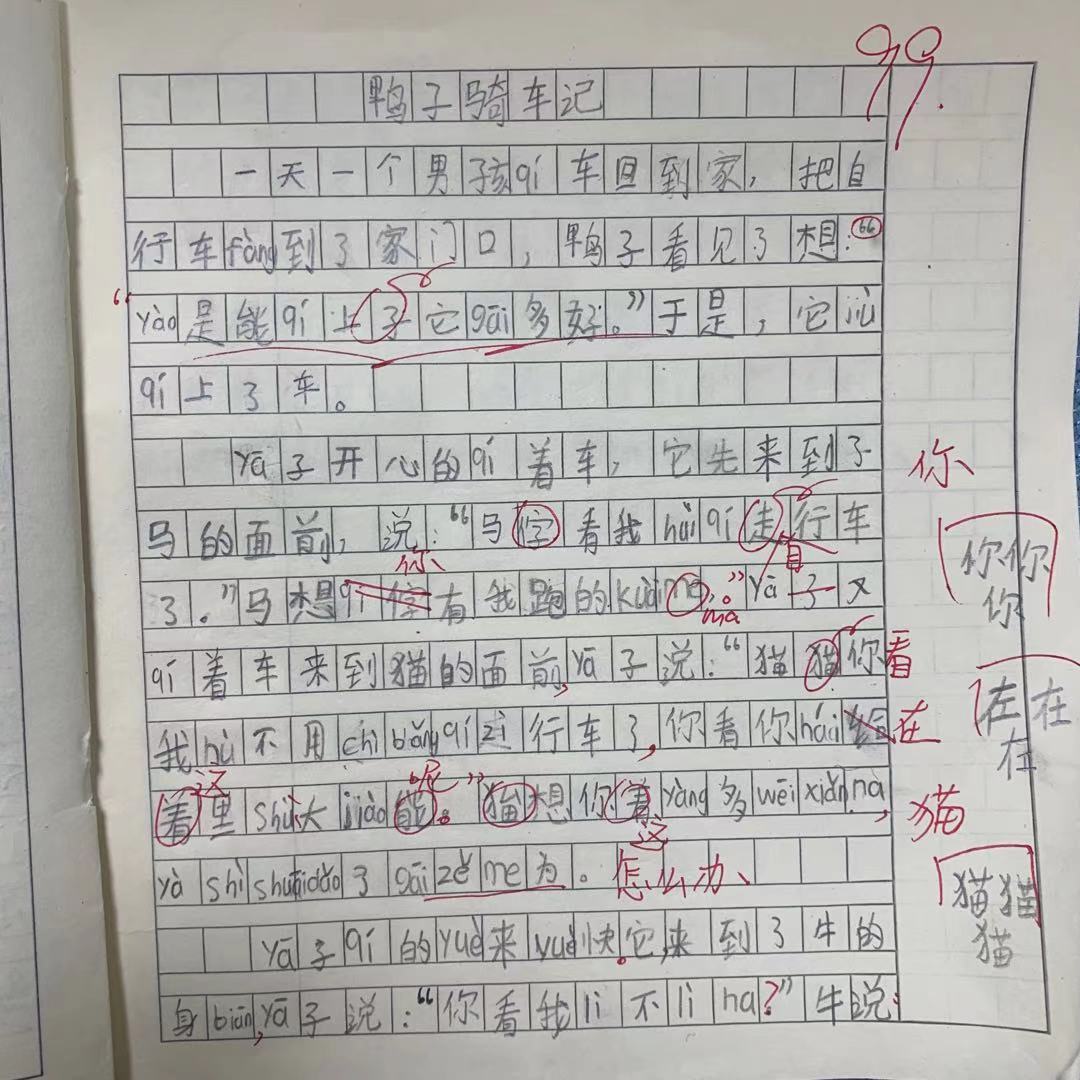 99.
鸭子骑车记
一天一个男孩qí车回到家，把自
行车fàng到了家门口，鸭子看见了想：“
“yào是能qí上了它gāi多好。”于是，它jiù
qí上了车。
yā子开心的qí着车，它先来到了
马的面前，说：“马字看我huìqí走行车
自
了。”马想qí 有我跑的kuàina。”yā子又
你
ma
qí着车来到猫的面前，yā子说：“猫猫你看
我hù不用chìbǎngqí 行车了，你看你hái 在
着里shuì大jiào能。”猫想你着yàng多wēixiǎnna，
这
呢
这
yàshìshuāidǎo了gāizěme为。怎么办、
yā子qí的yuè来yuè快。它来到了牛的
身biān，yā子说：“你看我lì不lìha？”牛说：
你
你你
你
在在
在
猫
猫猫
猫